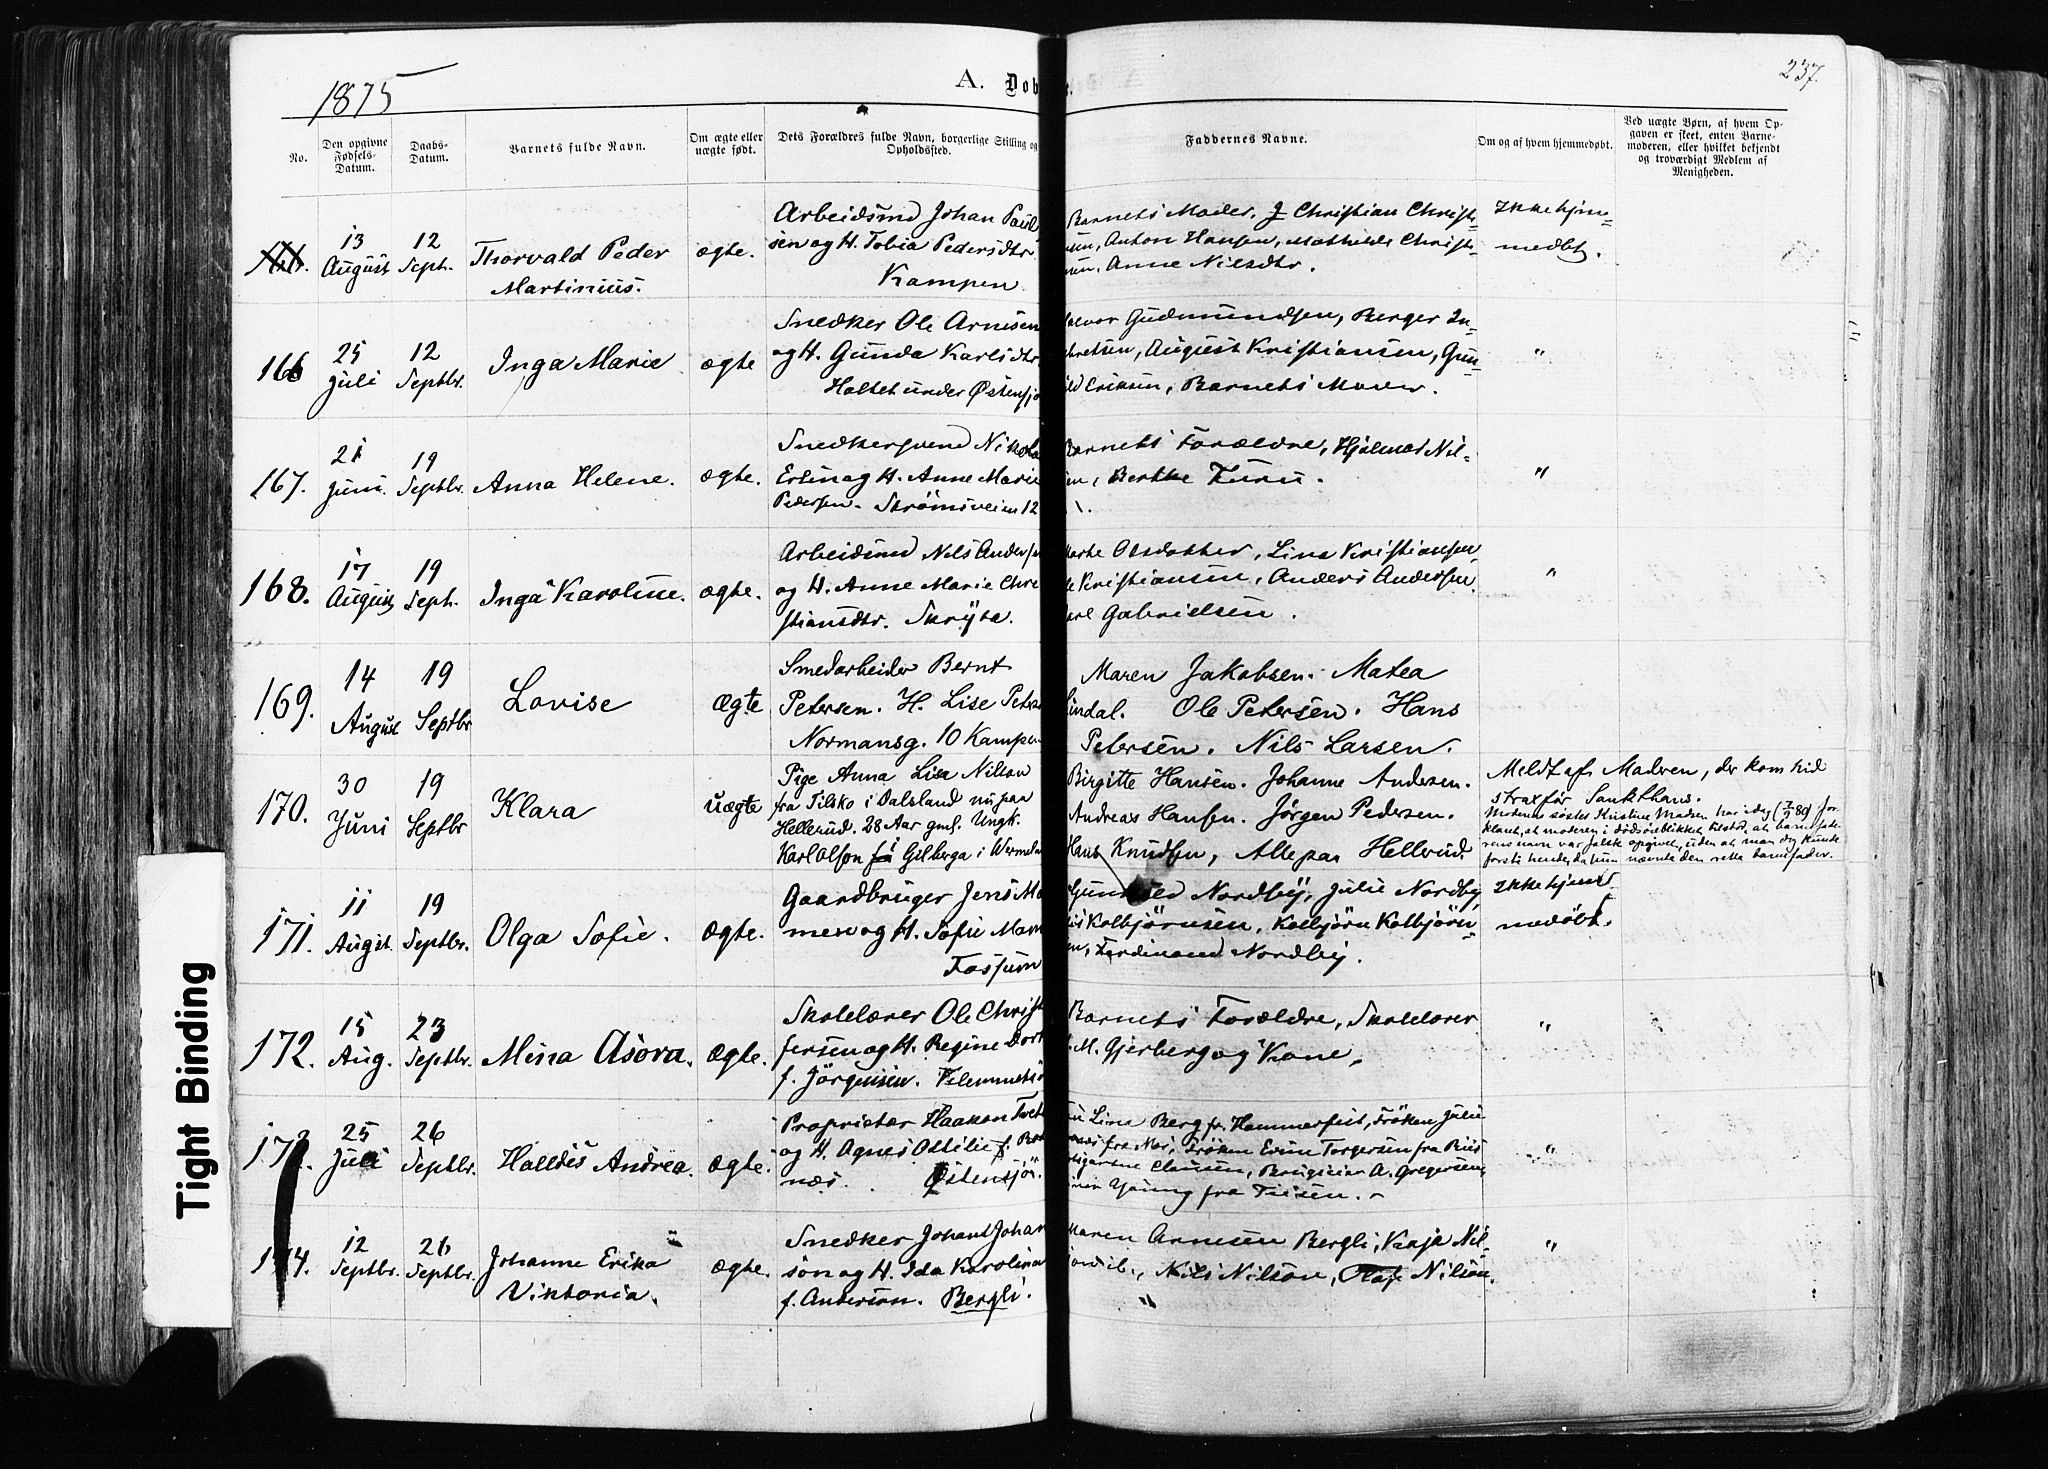 1875
A. Døb
237.
No.
Den opgivne Fødsels-Datum.
Daabs-Datum.
Barnets fulde Navn.
Om ægte eller uægte født.
Dets Forældres fulde Navn, borgerlige Stilling og Opholdssted.
Faddernes Navne.
Om og af hvem hjemmedøbt.
Ved uægte Børn, af hvem Opgaven er skeet, enten Barnemoderen, eller hvilket bekjendt og troværdigt Medlem af Menigheden.
13 August
12 Sept.
Thorvald Peder
Martinius.
ægte.
Arbeidsmd Johan Paul
sen og H. Tobia Pedersdtr
Kampen
Barnets Moder, Christian Christ-
Anton Hansen, Mathilde Christ-
Anne Nilsdtr.
Ikke hjem-
medøbt.
166
25 Juli
12 Septbr.
Inga Marie
ægte
Snedker Ole Arnesen
og H. Gunda Karlsdtr.
Holtet under Østensjø
Gudmundsen, Berger In-
August Kristiansen, Gun-
Eriksen, Barnets Moder.
"
167.
21 Juni.
19 Septbr.
Anna Helene.
ægte.
Snedkersvend Nikola
og H. Anne Marie
Pedersen. Strømsveien 12
Barnets Forældre, Hjalmar Nil-
"
168.
17 August
19 Sept.
Inga Karoline.
ægte.
Arbeidsmd Nils Anders
og H. Anne Marie Chri
stiansdtr. Skøyta.
Olsdatter, Lina Kristiansen
Kristiansen, Anders Andersen
Gabrielsen.
"
169.
14 August
19 Septbr
Lovise
ægte
Smedarbeider Bernt
Petersen. H. Lise Peters
Normansg. 10 Kampen
Maren Jakobsen. Matea
Lindal. Ole Petersen. Hans
Petersen. Nils Larsen.
170.
30 Juni
19 Septbr
Klara
uægte
Pige Anna Lisa Nilson
fra Tilsko i Dalsland nu paa
Hellerud. 28 Aar gml. Ungk.
Karl Olson fra Gilberga i Werml
Birgitte Hansen. Johanne Andersen.
Andreas Hansen. Jørgen Pedersen.
Hans Knudsen, Alle paa Hellerud.
Meldt af Moderen, der kom hid
strax før Sankthans.
Moderens søster Kristine Madsen har idag for-
klaret, at moderen i dødsøieblikket tilstod, at barnefade-
rens navn var falsk opgivet, uden at man dog kunde
forstå hende, da hun nævnte den rette barnefader.
171.
11 Augst.
19 Septbr.
Olga Sofie.
ægte.
Gaardbruger Jens
og H. Sofie
Fossum
Nordby, Julie Nordby,
Kolbjørnsen, Kolbjørn Kolbjørn-
Ferdinand Nordby.
Ikke hjem-
medøbt.
172.
15 Aug.
23 Septbr.
Mina Asora.
ægte.
Skolelærer Ole Christ
fersen og H. Regine
f. Jørgensen.
Barnets Forældre, Skolelærer
M. Gjerberg og Kone.
"
173.
25 Juli
26 Septbr.
Halldis Andrea.
ægte.
Proprietær Haakon Tvet
og H. Agnes Ottilie f.
næs. Østensjø.
Lina Berg fr. Hammerfest, Frøken Julie
fra Mos, Frøken Torgersen fra
Clausen, A. Gregersen,
Young fra Teisen.
"
174.
12 Septbr.
26 Septbr.
Johanne Erika
Viktoria.
ægte.
Snedker Johan Johan
son og H. Ida Karolina
f. Anderson. Bergli.
Maren Arnesen Bergli, Kaja Nil-
Nils Nilson, Olaf Nilson.
"
"
Tight Binding